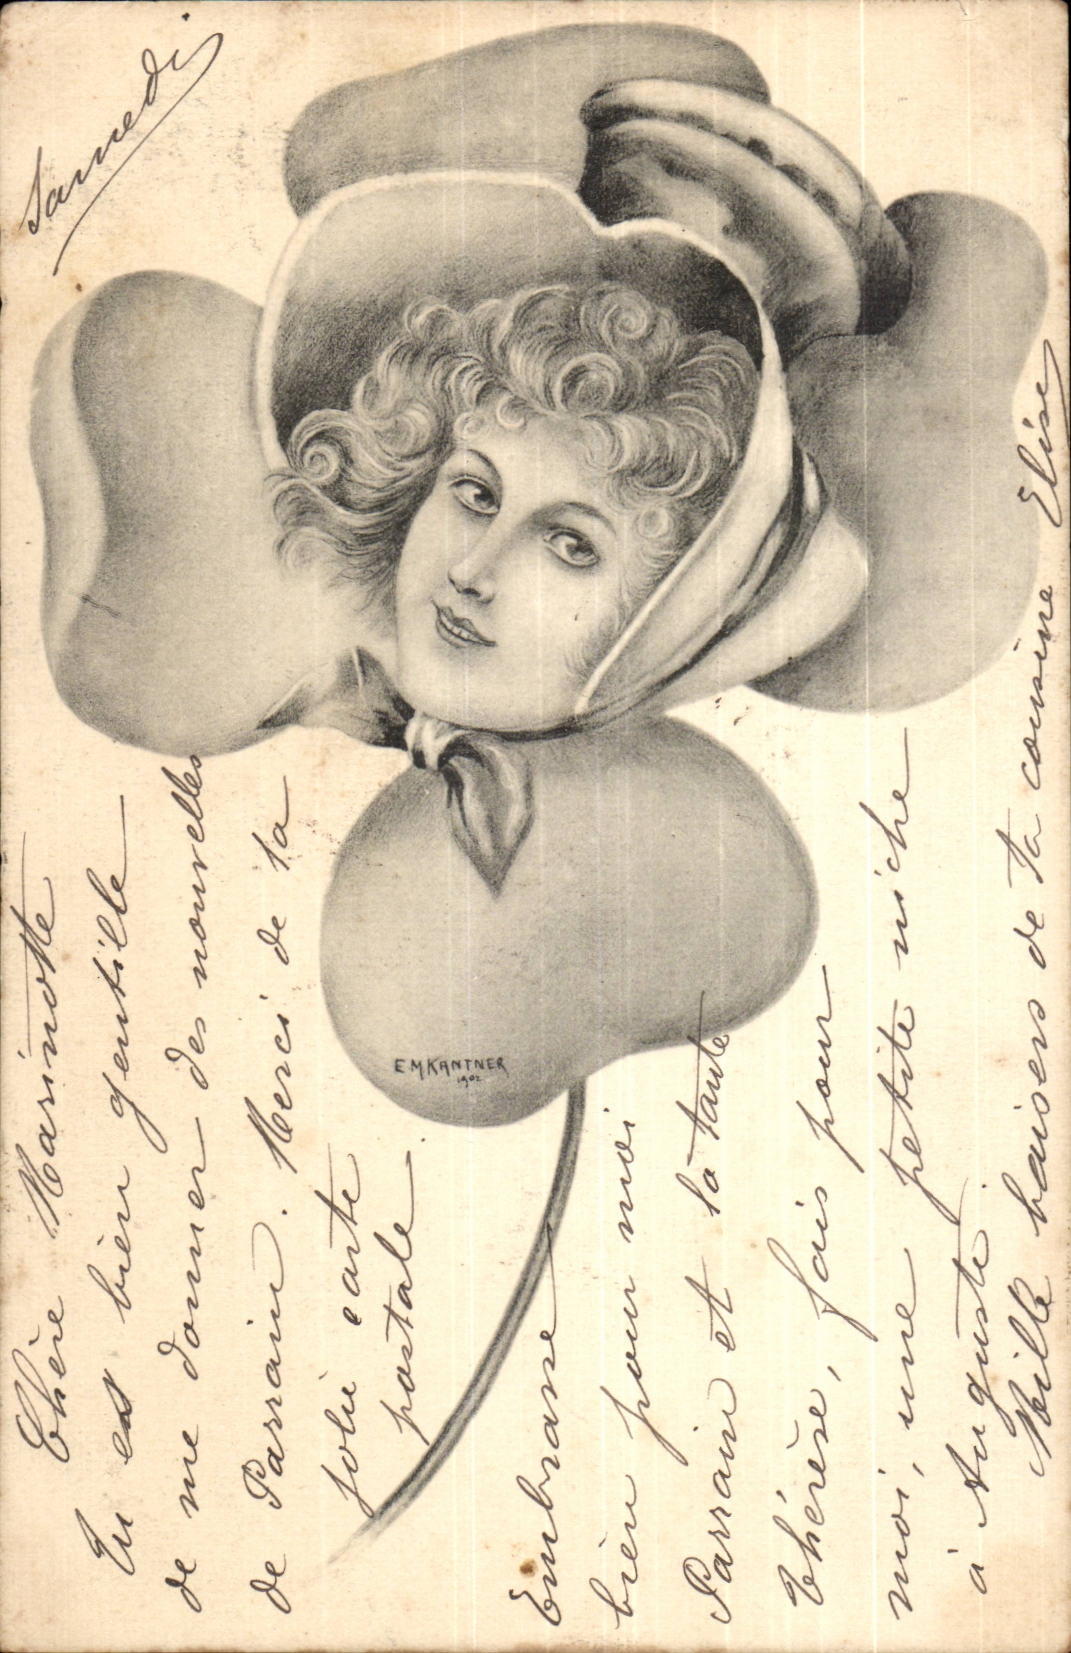 Samedi
Chère Marinotte
Tu es bien gentille
de me donner des nouvelles
de Parrain. Merci de ta
jolie carte
postale
Embrasse
bien pour moi
Parrain et ta tante
Thérèse, fais pour
moi, une petite niche
à Auguste.
Mille baisers de ta cousine Elise
E M KANTNER
1902